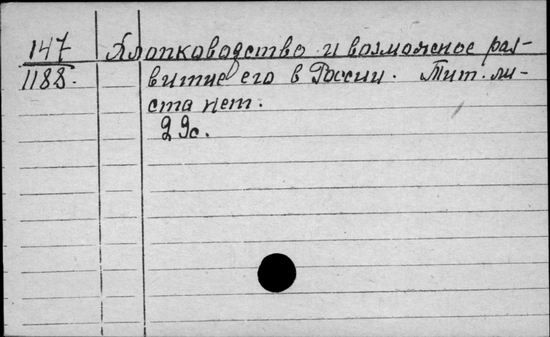 147 Хлопководство и возможное раз-
1188. витие его в России. Тит. ли-
ста нет.
29с.